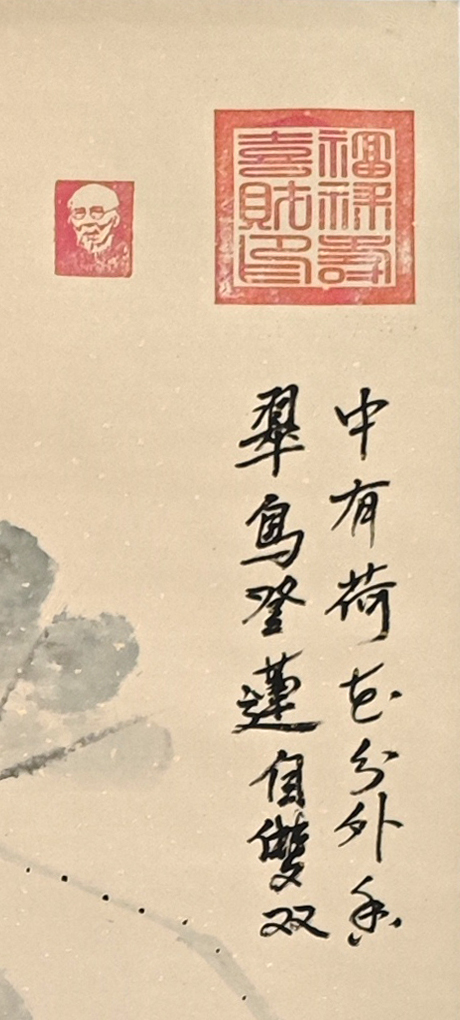 福祿壽
喜財印
中有荷花分外香
翠鳥登蓮自雙双